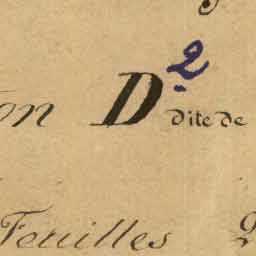 on D² dite de
Feuilles 2